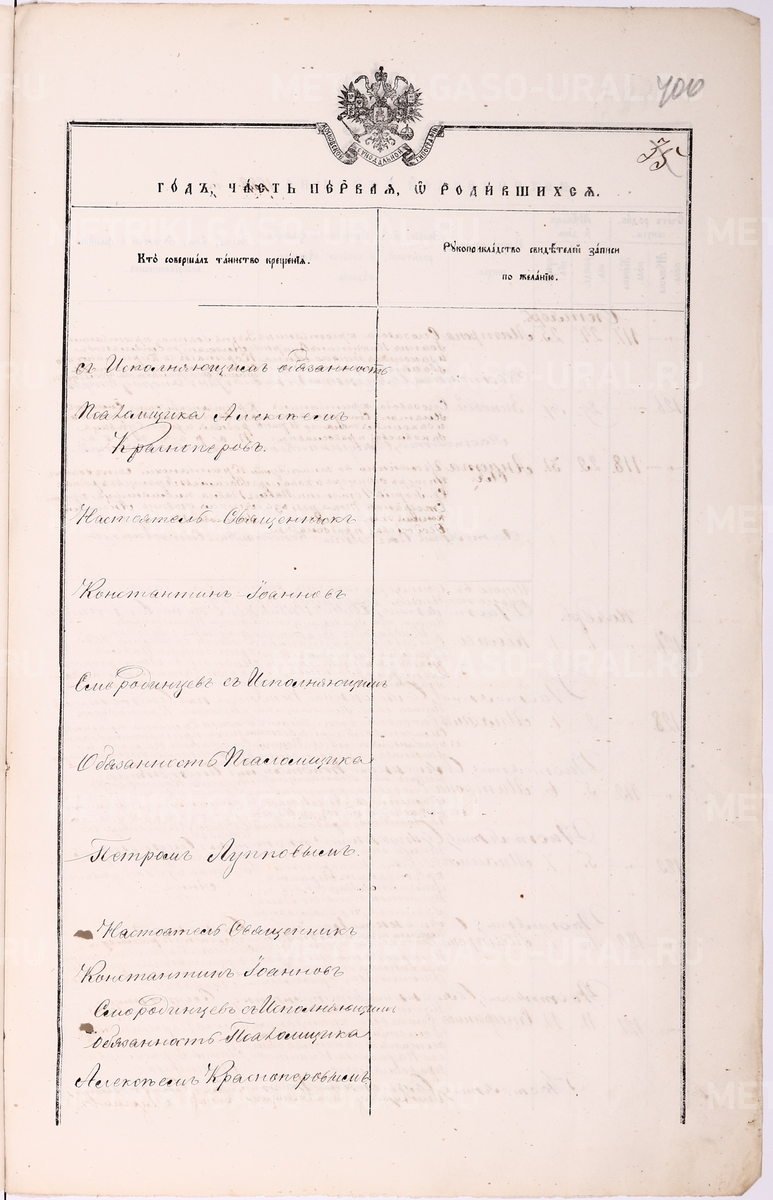 METRIKI.GASO-URAL.RU
400
МОСКОВСКОЙ СѴНОДАЛЬНОЙ ТИПОГРАФІИ
35
ГО́ДЪ, ЧА́СТЬ ПЕ́РВАЯ, Ѿ РОДИ́ВШИХСЯ.
Кто̀ совершалъ та́инство креще́нїѧ.
Рꙋкоприкла́дство свидѣ́телей за́писи
по жела́нїю.
съ Исполняющимъ обязанность
Псаломщика Алексѣемъ
Красноперовъ.
Настоятель Священникъ
Константинъ Іоанновъ
Смородинцевъ съ Исполняющимъ
Обязанность Псаломщика
Петромъ Лупповымъ.
Настоятель Священникъ
Константинъ Іоанновъ
Смородинцевъ съ Исполняющимъ
обязанность Псаломщика
Алексѣемъ Красноперовымъ